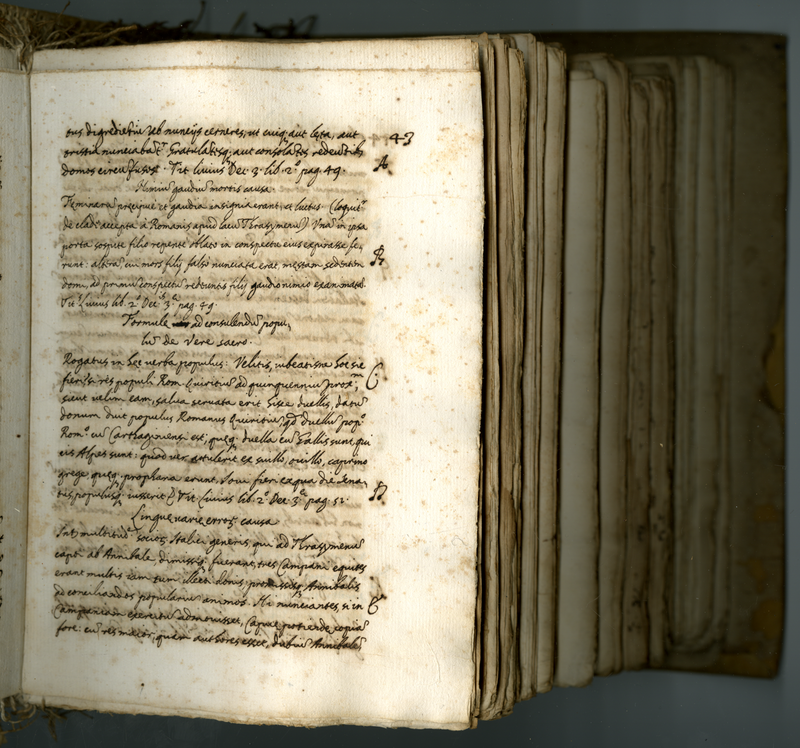 tus digredientiũ ab nuncijs cerneres, ut cuiq; aut lęta, aut
43
tristia nunciabant. Gratulantesq; aut consolantes redeuntib;
A
domos circumfusos. Tit. Liuius Dec. 3. lib. 2.º pag. 49.
Nimiũ gaudiũ mortis causa.
Feminarũ precipuè et gaudia insignia erant, et luctus. (loquitr
de clade accepta à Romanis apud lacũ Thrasymenũ) Vnã in ipsa
porta sospite filio repente oblato in conspectu eius expirasse fe,
B
runt: alterã, cui mors filij falso nunciata erat, mestam sedentem
domi, ad primũ conspectũ redeuntis filij gaudio nimio exanimatã.
Tit. Liuius lib. 2.º Dec.s 3.ę pag. 49.
Formule ad consulendũ popu,
lũ de Vere sacro.
Rogatus in hęc verba populus: Velitis, iubeatisne hęc sic
C
fieri? si res populi Rom. Quiritiũ ad quinquenniũ proxm̃,
sicut velim eam, salua seruata erit hisce duellis, datũ
donum duit populus Romanus Quiritiũ, qd duellũ popº
Romº cũ Carthaginensi est, quęq; duella cũ Gallis sunt, qui
cis Alpes sunt: quod ver attulerit ex suillo, ouillo, caprino
grege, quęq; prophana erunt, Ioui fieri ex qua die sena,
D
tus, populusq; iusserit. Tit. Liuius lib. 2.º Dec. 3.ę pag. 51.
Linguę varię error, causa
Int. multitudẽ socior, Italici generis, qui ad Thrasymenũ
capti ab Annibale, dimissiq; fuerant, tres Campani equites
erant multis iam tum illecti donis, promissisq; Annibalis
ad conciliandos popularium animos. Hi nunciantes, si in
E
Campaniam exercitũ admouisset, Capuę potiendę copiã
fore: cũ res maior, quàm authores esset, dubiũ Annibalẽ,